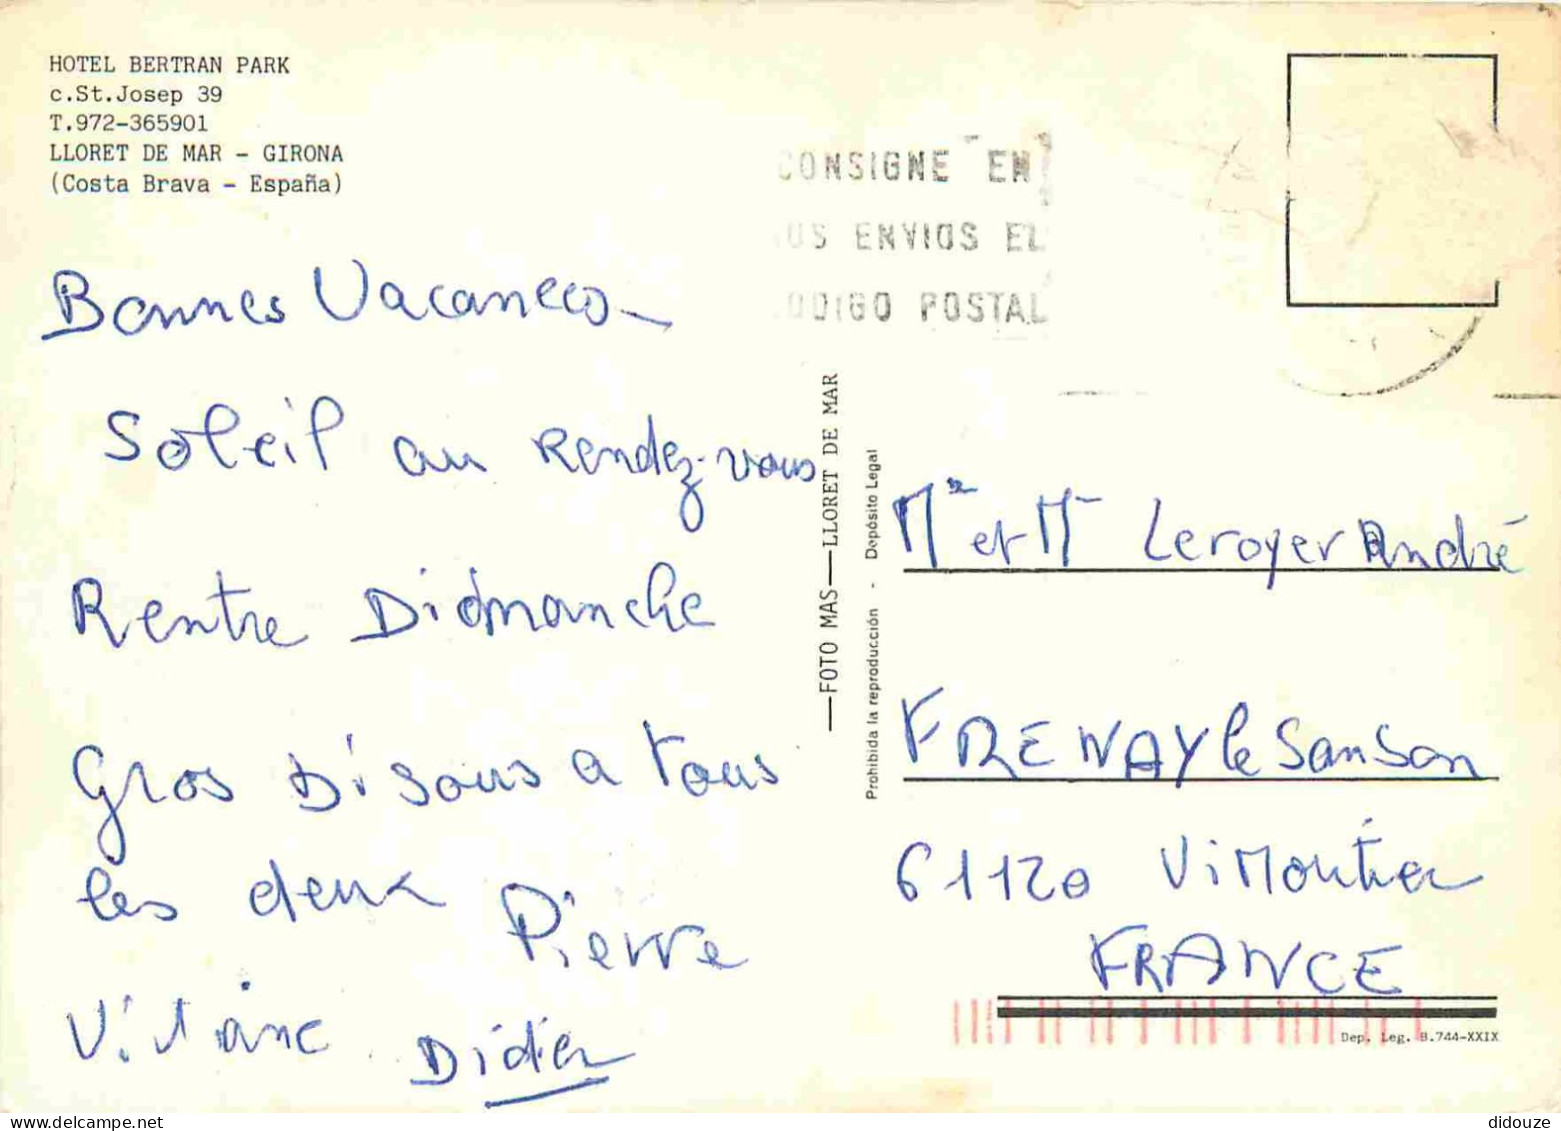 HOTEL BERTRAN PARK
c.St.Josep 39
T.972-365901
LLORET DE MAR - GIRONA
(Costa Brava - España)
CONSIGNE EN
OS ENVIOS EL
ODIGO POSTAL
Bonnes Vacances
Soleil au Rendez-vous
Rentre Didmanche
Gros Bisous a tous
les deux Pierre
Didier
—FOTO MAS—LLORET DE MAR
Prohibida la reproducción - Depósito Legal
et Leroyer André
FRENAY le Sanson
61120 ViMoutier
FRANCE
Dep. Leg. B.744-XXIX
didouze